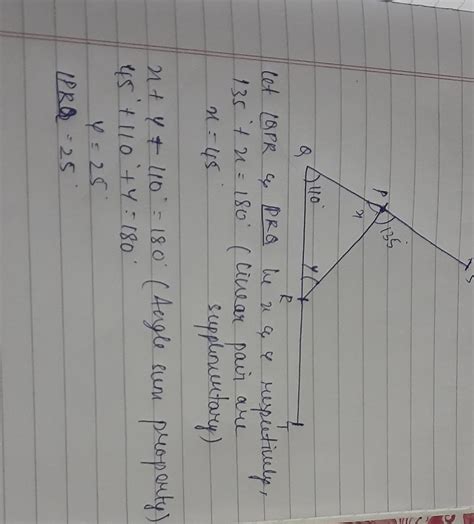 S
P
135°
x
Q
110°
y
R
T
let ∠QPR & ∠PRQ be x & y respetively,
135° + x = 180° (linear pair are
supplementary)
x = 45°
x + y + 110° = 180° (Angle sum property)
45° + 110° + y = 180°
y = 25°
∠PRQ = 25°